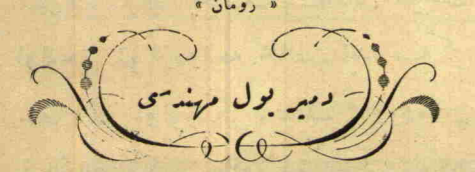 « رومان »
دمیر یول مهندسی